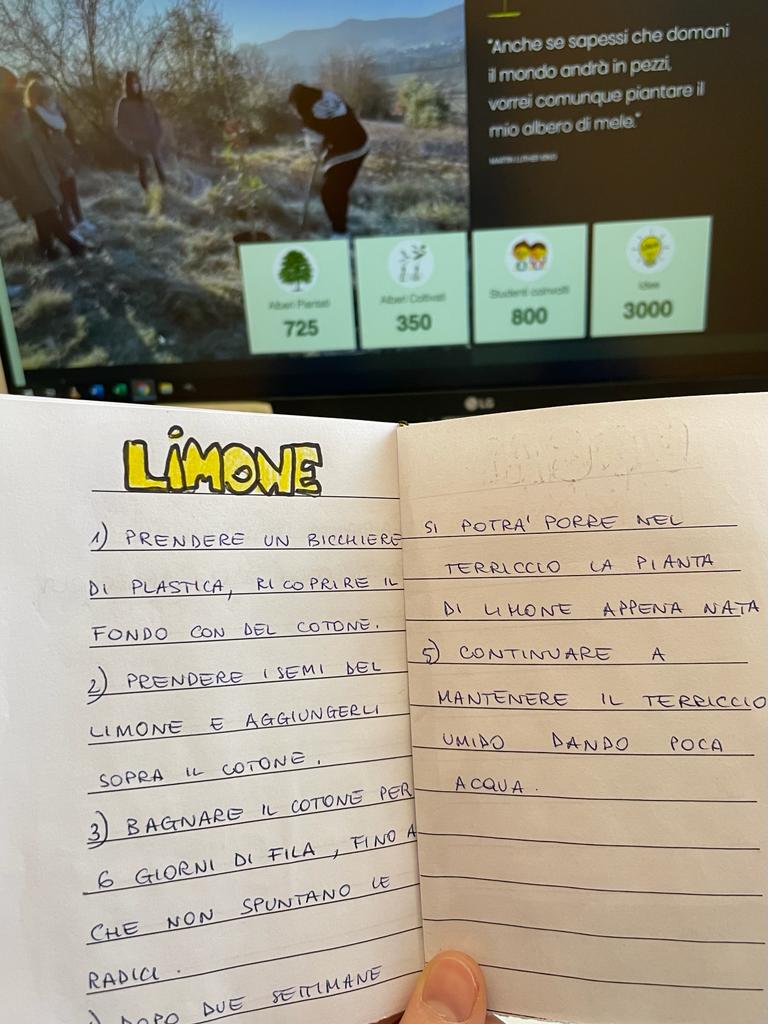 "Anche se sapessi che domani
il mondo andrà in pezzi,
vorrei comunque piantare il
mio albero di mele."
MARTIN LUTHER KING
Alberi Piantati
725
Alberi Coltivati
350
Studenti coinvolti
800
Idee
3000
LG
LIMONE
1) PRENDERE UN BICCHIERE
DI PLASTICA, RICOPRIRE IL
FONDO CON DEL COTONE.
2) PRENDERE I SEMI DEL
LIMONE E AGGIUNGERLI
SOPRA IL COTONE.
3) BAGNARE IL COTONE PER
6 GIORNI DI FILA, FINO A
CHE NON SPUNTANO LE
RADICI.
DOPO DUE SETTIMANE
SI POTRA' PORRE NEL
TERRICCIO LA PIANTA
DI LIMONE APPENA NATA
5) CONTINUARE A
MANTENERE IL TERRICCIO
UMIDO DANDO POCA
ACQUA.